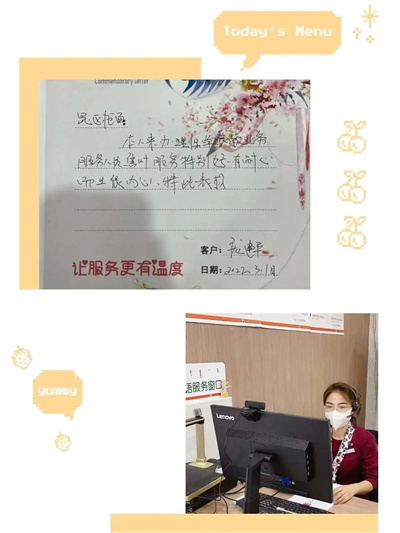 Today's Menu
Commendatory letter
昆区柜面:
本人来办理保全业务
服务人员焦叶服务特别好,有耐心
而且很内心,特此表扬
客户:
让服务更有温度
日期:2022.3.1日
语服务窗口
Lenovo
yummy